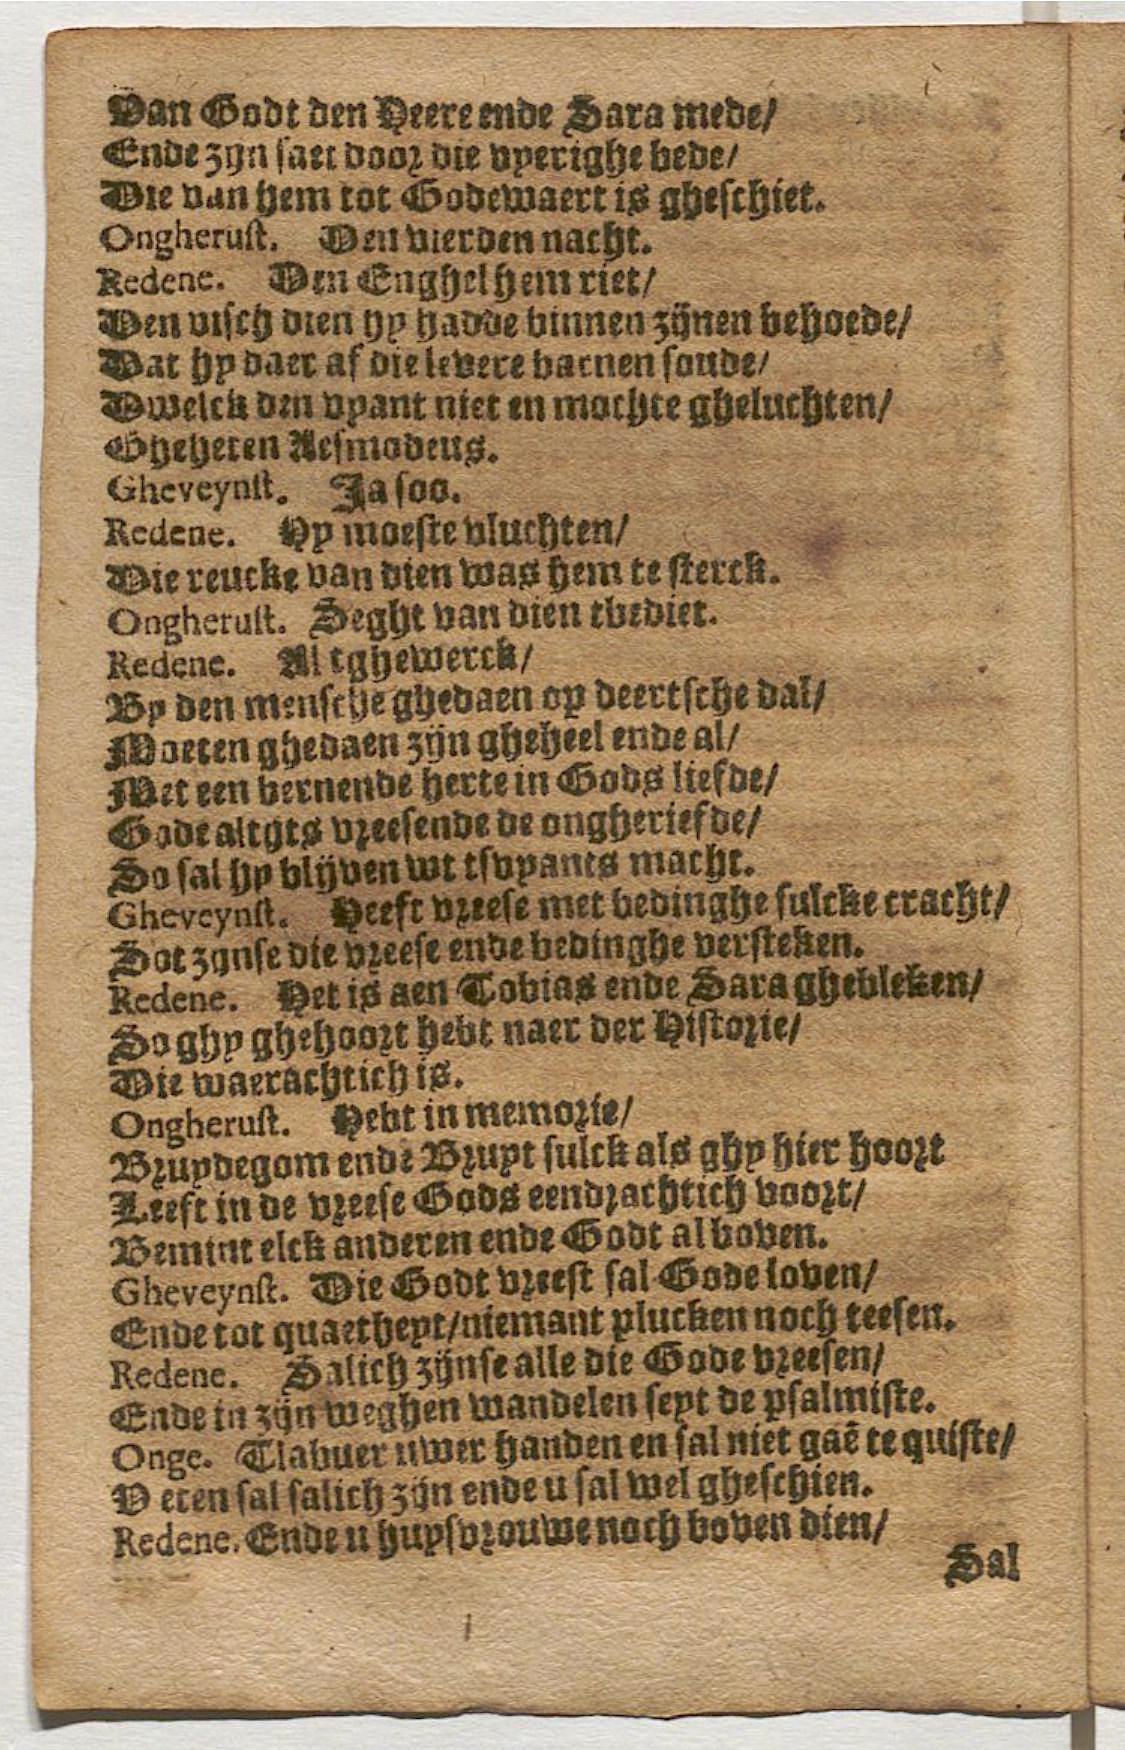 Van Godt den Heere ende Sara mede/
Ende zijn saet door die vyerighe bede/
Die van hem tot Godewaert is gheschiet.
Ongherust. Den vierden nacht.
Redene. Den Enghel hem riet/
Den visch dien hy hadde binnen zijnen behoede/
Dat hy daer af die levere barnen soude/
Dwelck den vyant niet en mochte gheluchten/
Gheheten Aesmodeus.
Gheveynst. Ja soo.
Redene. Hy moeste vluchten/
Die reucke van dien was hem te sterck.
Ongherust. Seght van dien tbediet.
Redene. Al tghewerck/
By den mensche ghedaen op deertsche dal/
Moeten ghedaen zijn gheheel ende al/
Met een bernende herte in Gods liefde/
Gode altijts vreesende de ongheriefde/
So sal hy blijven wt tsvyants macht.
Gheveynst. Heeft vreese met bedinghe sulcke cracht/
Sot zijnse die vreese ende bedinghe versteken.
Redene. Het is aen Tobias ende Sara ghebleken/
So ghy ghehoort hebt naer der Historie/
Die waerachtich is.
Ongherust. Hebt in memorie/
Bruydegom ende Bruyt sulck als ghy hier hoort
Leeft in de vreese Gods eendrachtich voort/
Bemint elck anderen ende Godt al boven.
Gheveynst. Die Godt vreest sal Gode loven/
Ende tot quaetheyt/niemant plucken noch teesen.
Redene. Salich zijnse alle die Gode vreesen/
Ende in zijn weghen wandelen seyt de psalmiste.
Onge. Tlabuer uwer handen en sal niet gaē te quiste/
V eten sal salich zijn ende u sal wel gheschien.
Redene. Ende u huysvrouwe noch boven dien/
Sal